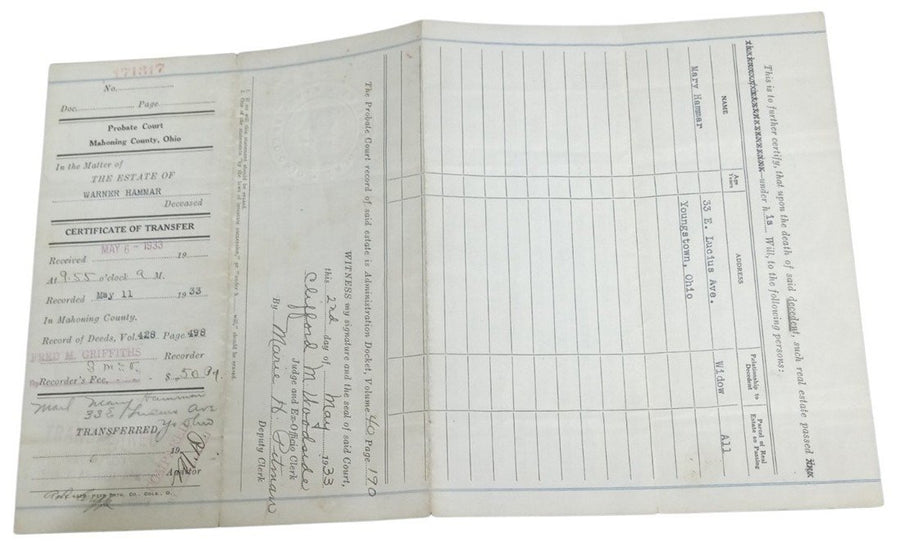 171317
No.
Doc. Page
Probate Court
Mahoning County, Ohio
In the Matter of
THE ESTATE OF
WARNER HAMMAR
Deceased
CERTIFICATE OF TRANSFER
MAY 6 - 1933
Received 19
At 9:55 o'clock A M.
Recorded May 11 1933
In Mahoning County.
Record of Deeds, Vol. 428 Page 498
FRED M. GRIFFITHS Recorder
Recorder's Fee, $ .50
Mail Mary Hammar
33 E Lucius Ave
TRANSFERRED, Yo Ohio
19
Auditor
This is to further certify, that upon the death of said decedent, such real estate passed
under his Will, to the following persons:
NAME Age Years ADDRESS Relationship to Decedent Parcel of Real Estate as Passing
Mary Hammar 33 E. Lucius Ave. Widow All
Youngstown, Ohio
The Probate Court record of said estate is Administration Docket, Volume 40 Page 170
WITNESS my signature and the seal of said Court,
this 2nd day of May 1933
Clifford M Woodside
Judge and Ex-Officio Clerk
By Marie H. Pitman
Deputy Clerk